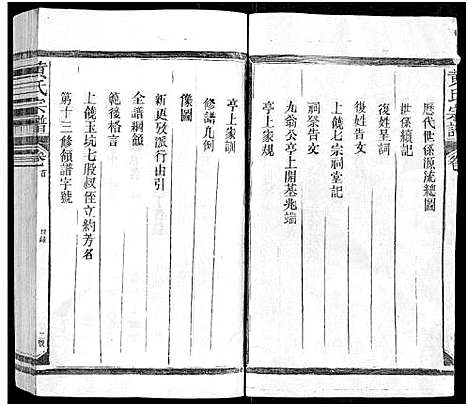 歷代世係源流總圖
世係續記
復姓呈詞
復姓告文
上饒七宗祠堂記
祠祭告文
九翁公亭上開基兆端
亭上家規
亭上家訓
修譜凡例
像圖
新更攷派行由引
全譜綱領
範後格言
上饒玉坑七股叔侄立約芳名
第十三修領譜字號
黃氏宗譜
卷首
目錄
二號